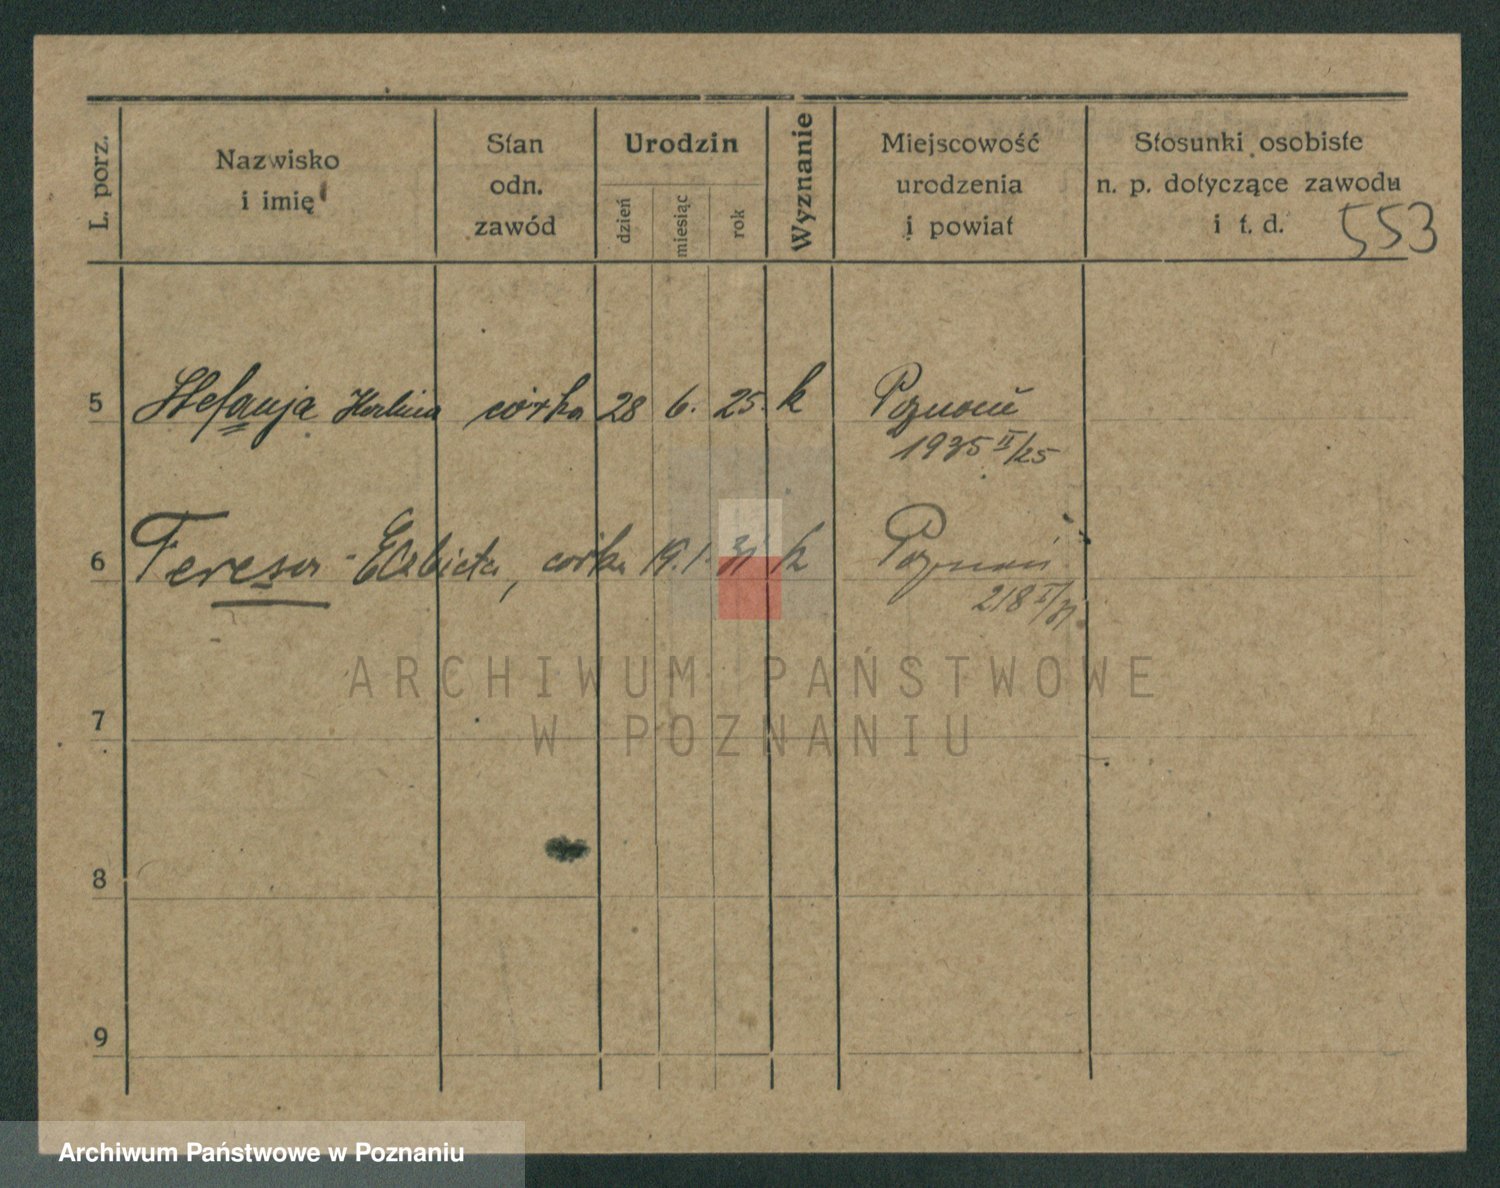 L. porz.
Nazwisko
i imię
Stan
odn.
zawód
Urodzin
dzień
miesiąc
rok
Wyznanie
Miejscowość
urodzenia
i powiat
Stosunki osobiste
n. p. dotyczące zawodu
i t. d.
553
5 Stefanja córka 28 6. 25. k Poznań
1935 II/25
6 Teresa - Elżbieta, córka 19. 1. 31 k Poznań
218 I/31
ARCHIWUM PAŃSTWOWE
W POZNANIU
7
8
9
Archiwum Państwowe w Poznaniu